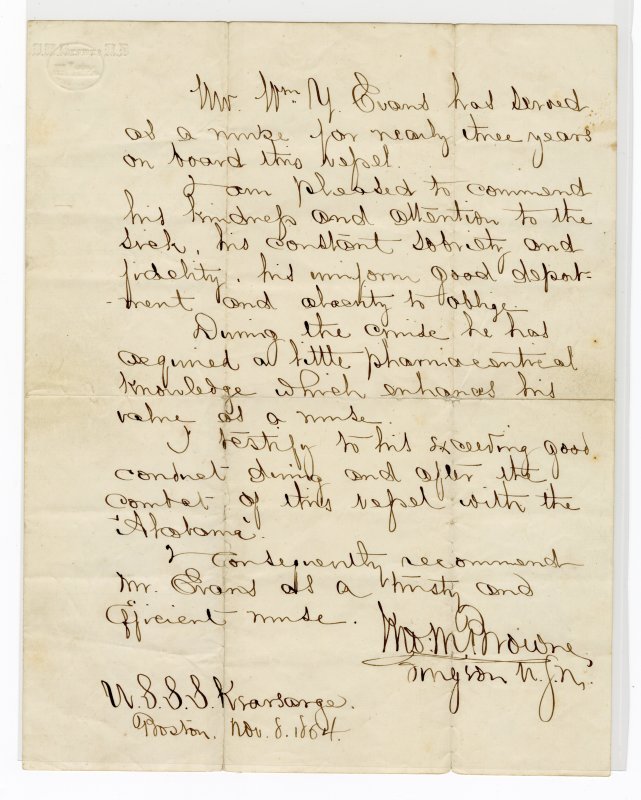 Mr. Wm Y. Evans has served
as a nurse for nearly three years
on board this vessel.
I am pleased to commend
his kindness and attention to the
sick, his constant sobriety and
fidelity, his uniform good deport-
-ment and alacrity to oblige.
During the cruise he has
acquired a little pharmaceutical
knowledge which enhances his
value as a nurse.
I testify to his exceeding good
conduct during and after the
combat of this vessel with the
'Alabama'.
I consequently recommend
Mr. Evans as a trusty and
efficient nurse.
Jno. M. Browne
Surgeon U.S.N.
U.S.S.S. Kearsarge.
Boston. Nov. 8. 1864.